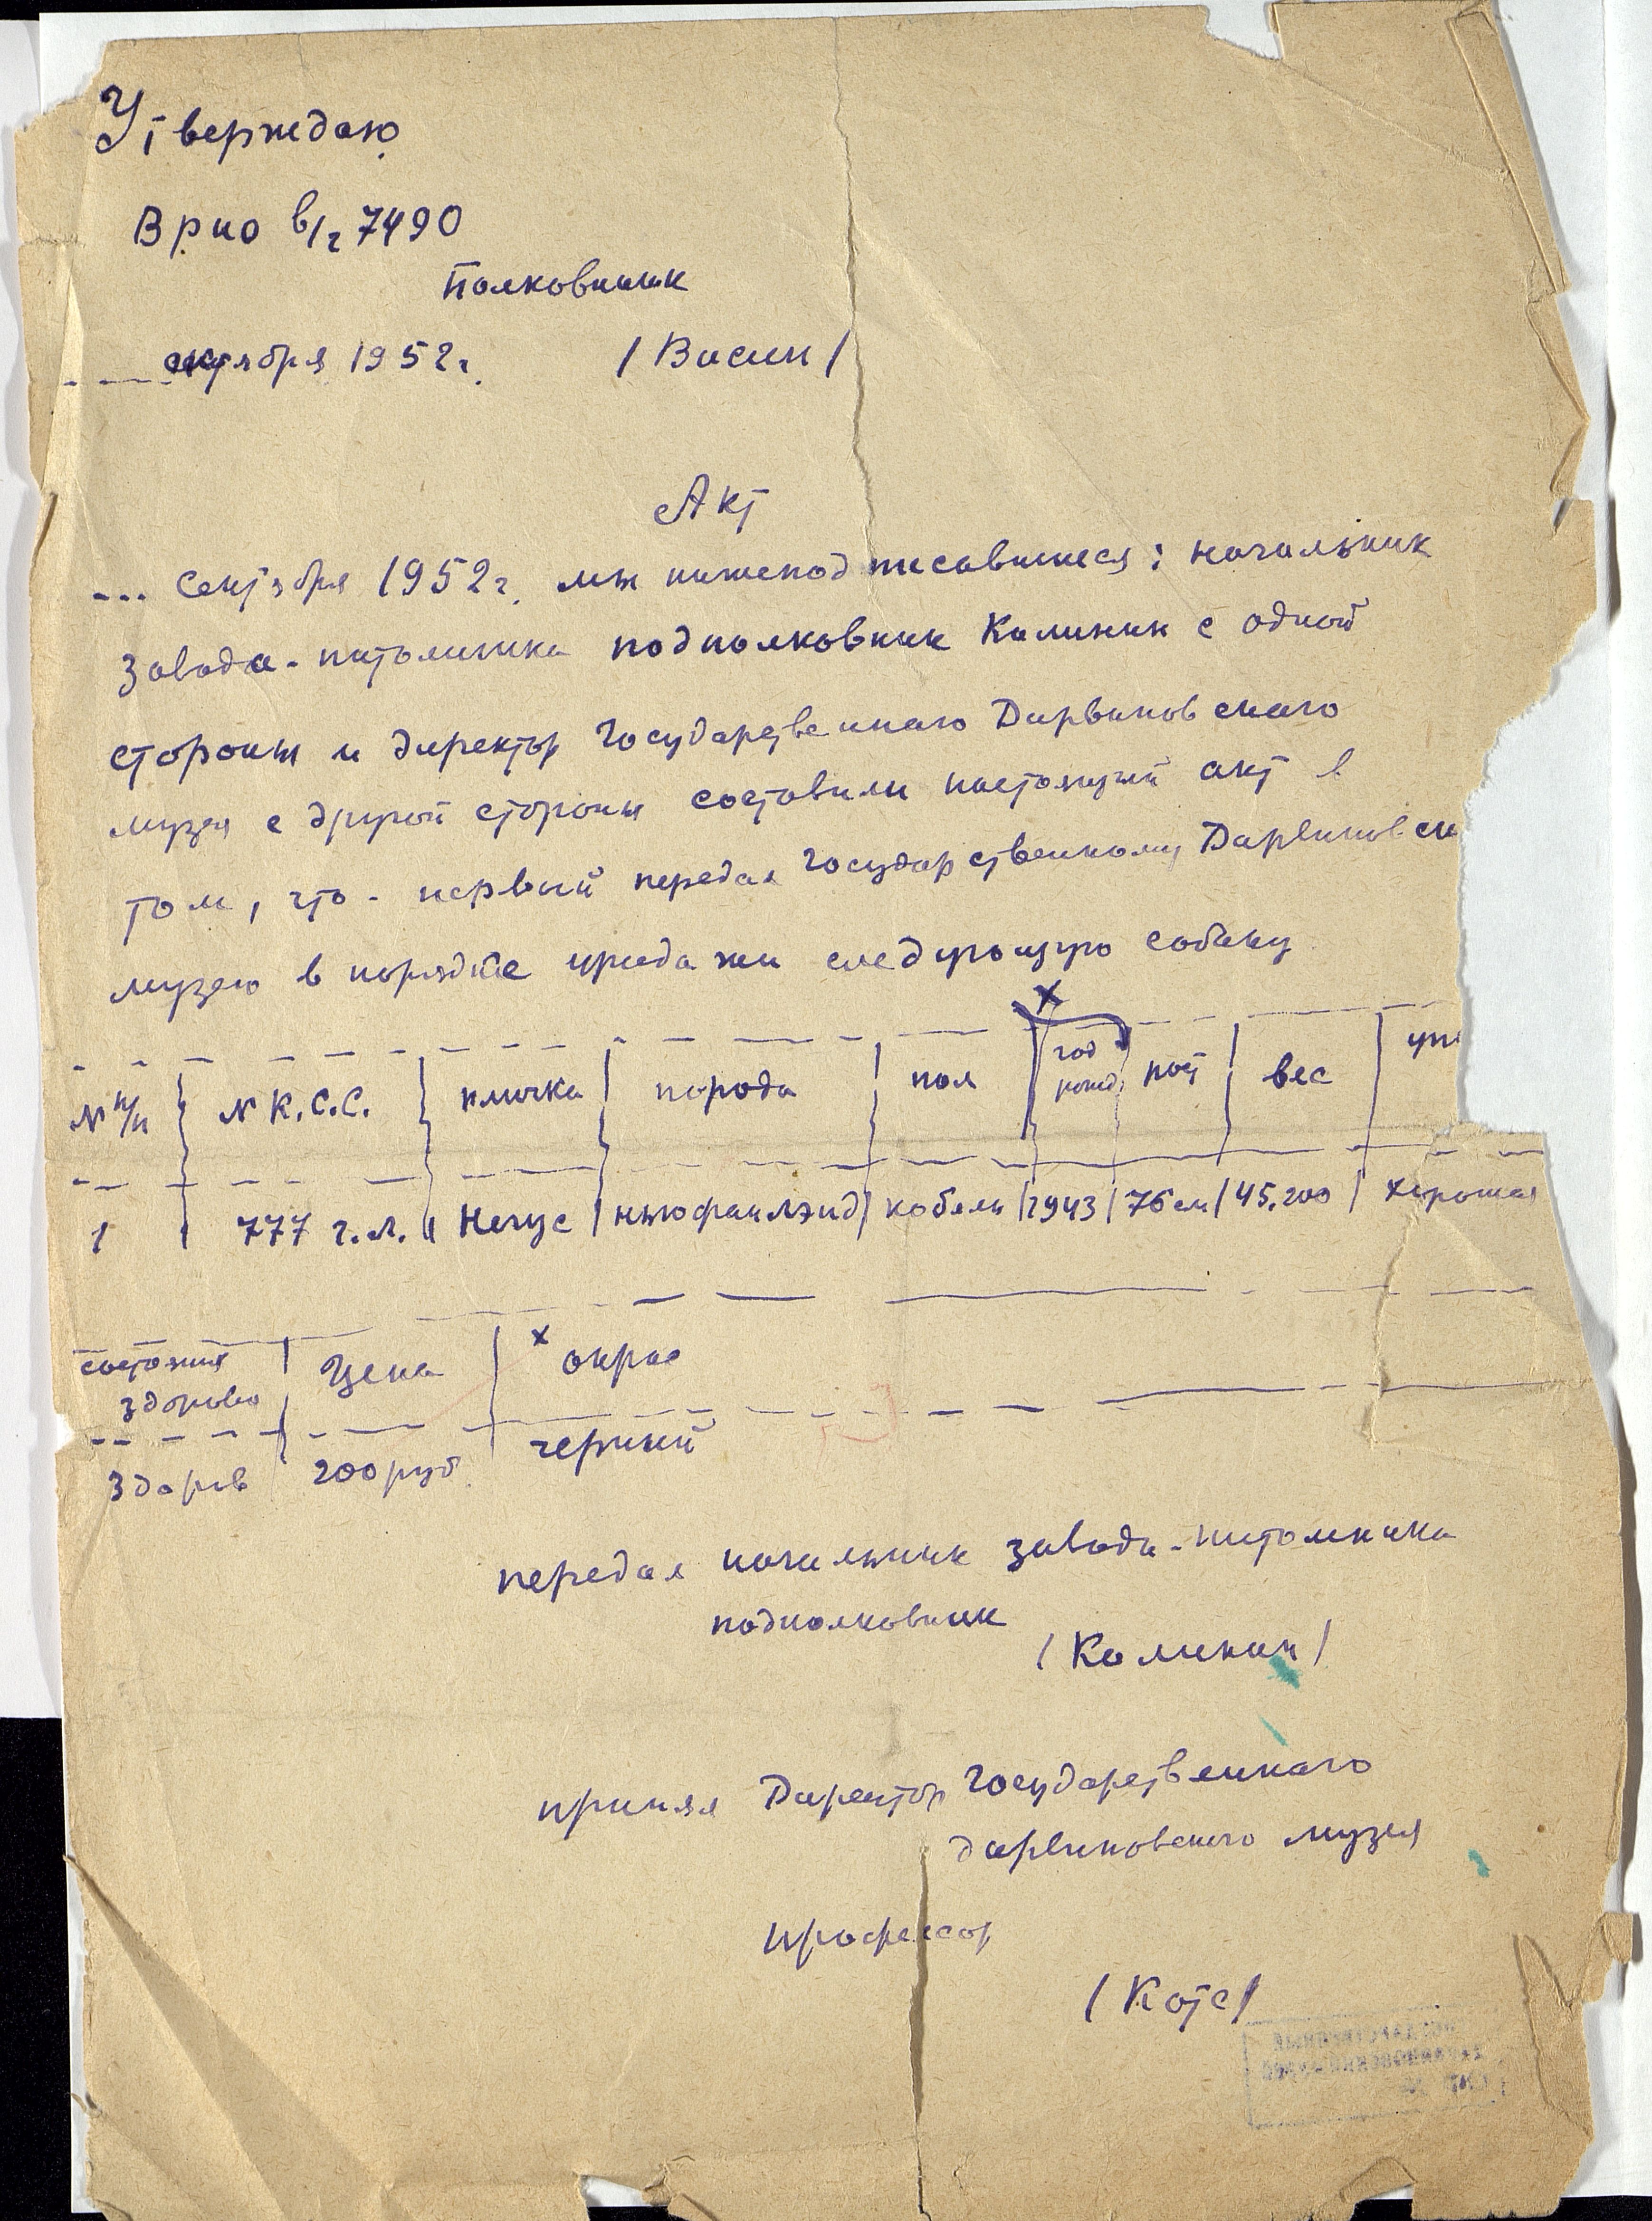 Утверждаю
Врио в/ч 7490
Полковник
октября 1952г. /Васин/
Акт
--- сентября 1952г. мы нижеподписавшиеся: начальник
завода-питомника подполковник Калинин с одной
стороны и директор Государственного Дарвиновского
музея с другой стороны составили настоящий акт в
том, что - первый передал Государственному Дарвиновск
музею в порядке продажи следующую собаку
№ п/п | № К.С.С. | кличка | порода | пол | год рожд. | рост | вес | уп
1 | 777 г.л. | Негус | ньюфаунлэнд | кобель | 1943 | 76 см | 45.200 | хорошая
состояния здоровья | Цена | x окрас
Здоров | 200 руб. | черный
передал начальник завода-питомника
подполковник
/Калинин/
принял Директор Государственного
дарвиновского музея
профессор
/Котс/